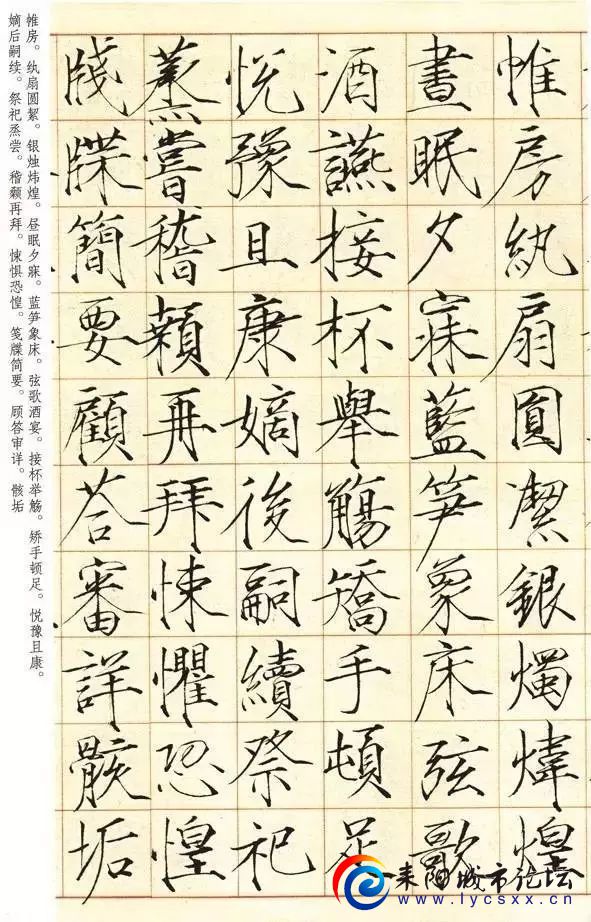 帷房紈扇圓潔銀燭煒煌
晝眠夕寐藍笋象床弦歌
酒讌接杯舉觴矯手頓足
悅豫且康嫡後嗣續祭祀
蒸嘗稽顙再拜悚懼恐惶
牋牒簡要顧荅審詳骸垢
帷房。纨扇圆絜。银烛炜煌。昼眠夕寐。蓝笋象床。弦歌酒宴。接杯举觞。矫手顿足。悦豫且康。
嫡后嗣续。祭祀烝尝。稽颡再拜。悚惧恐惶。笺牒简要。顾答审详。骸垢
耒阳城市论坛
www.lycsxx.cn